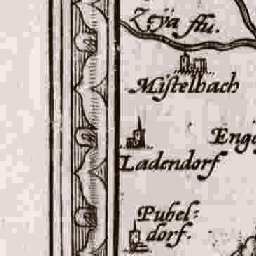 Zeÿa flu.
Mistelbach
Ladendorf
Puhel:
dorf.